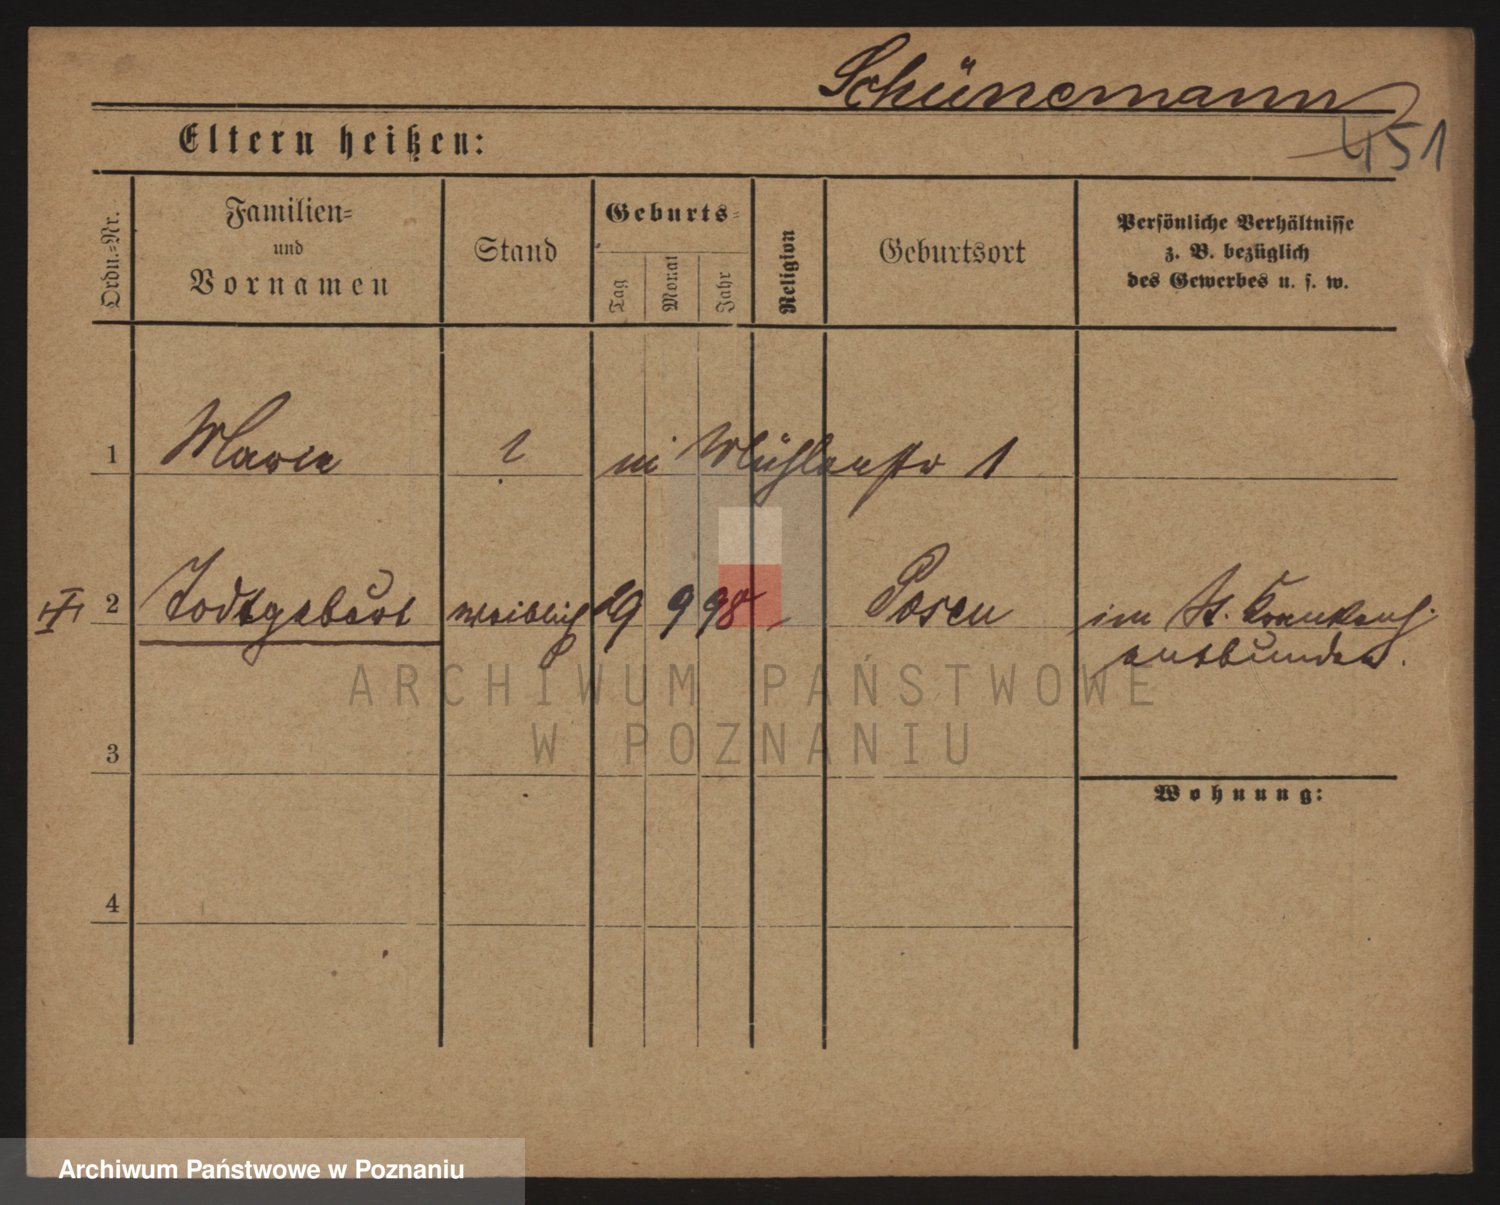 Schünemann
451
Eltern heißen:
Ordn.-Nr.
Familien-
und
Vornamen
Stand
Geburts-
Tag
Monat
Jahr
Religion
Geburtsort
Persönliche Verhältnisse
z. B. bezüglich
des Gewerbes u. s. w.
1 Marie in Mühlenstr 1
2 Todtgeburt weiblich 19 9 98 Posen im St. Krankenh.
entbunden.
3
Wohnung:
4
ARCHIWUM PAŃSTWOWE
W POZNANIU
Archiwum Państwowe w Poznaniu